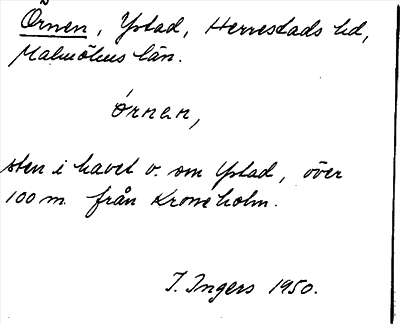 Örnen, Ystad, Herrestads hd,
Malmöhus län.
Örnen,
sten i havet v. om Ystad, över
100 m från Kroneholm.
I. Ingers 1950.